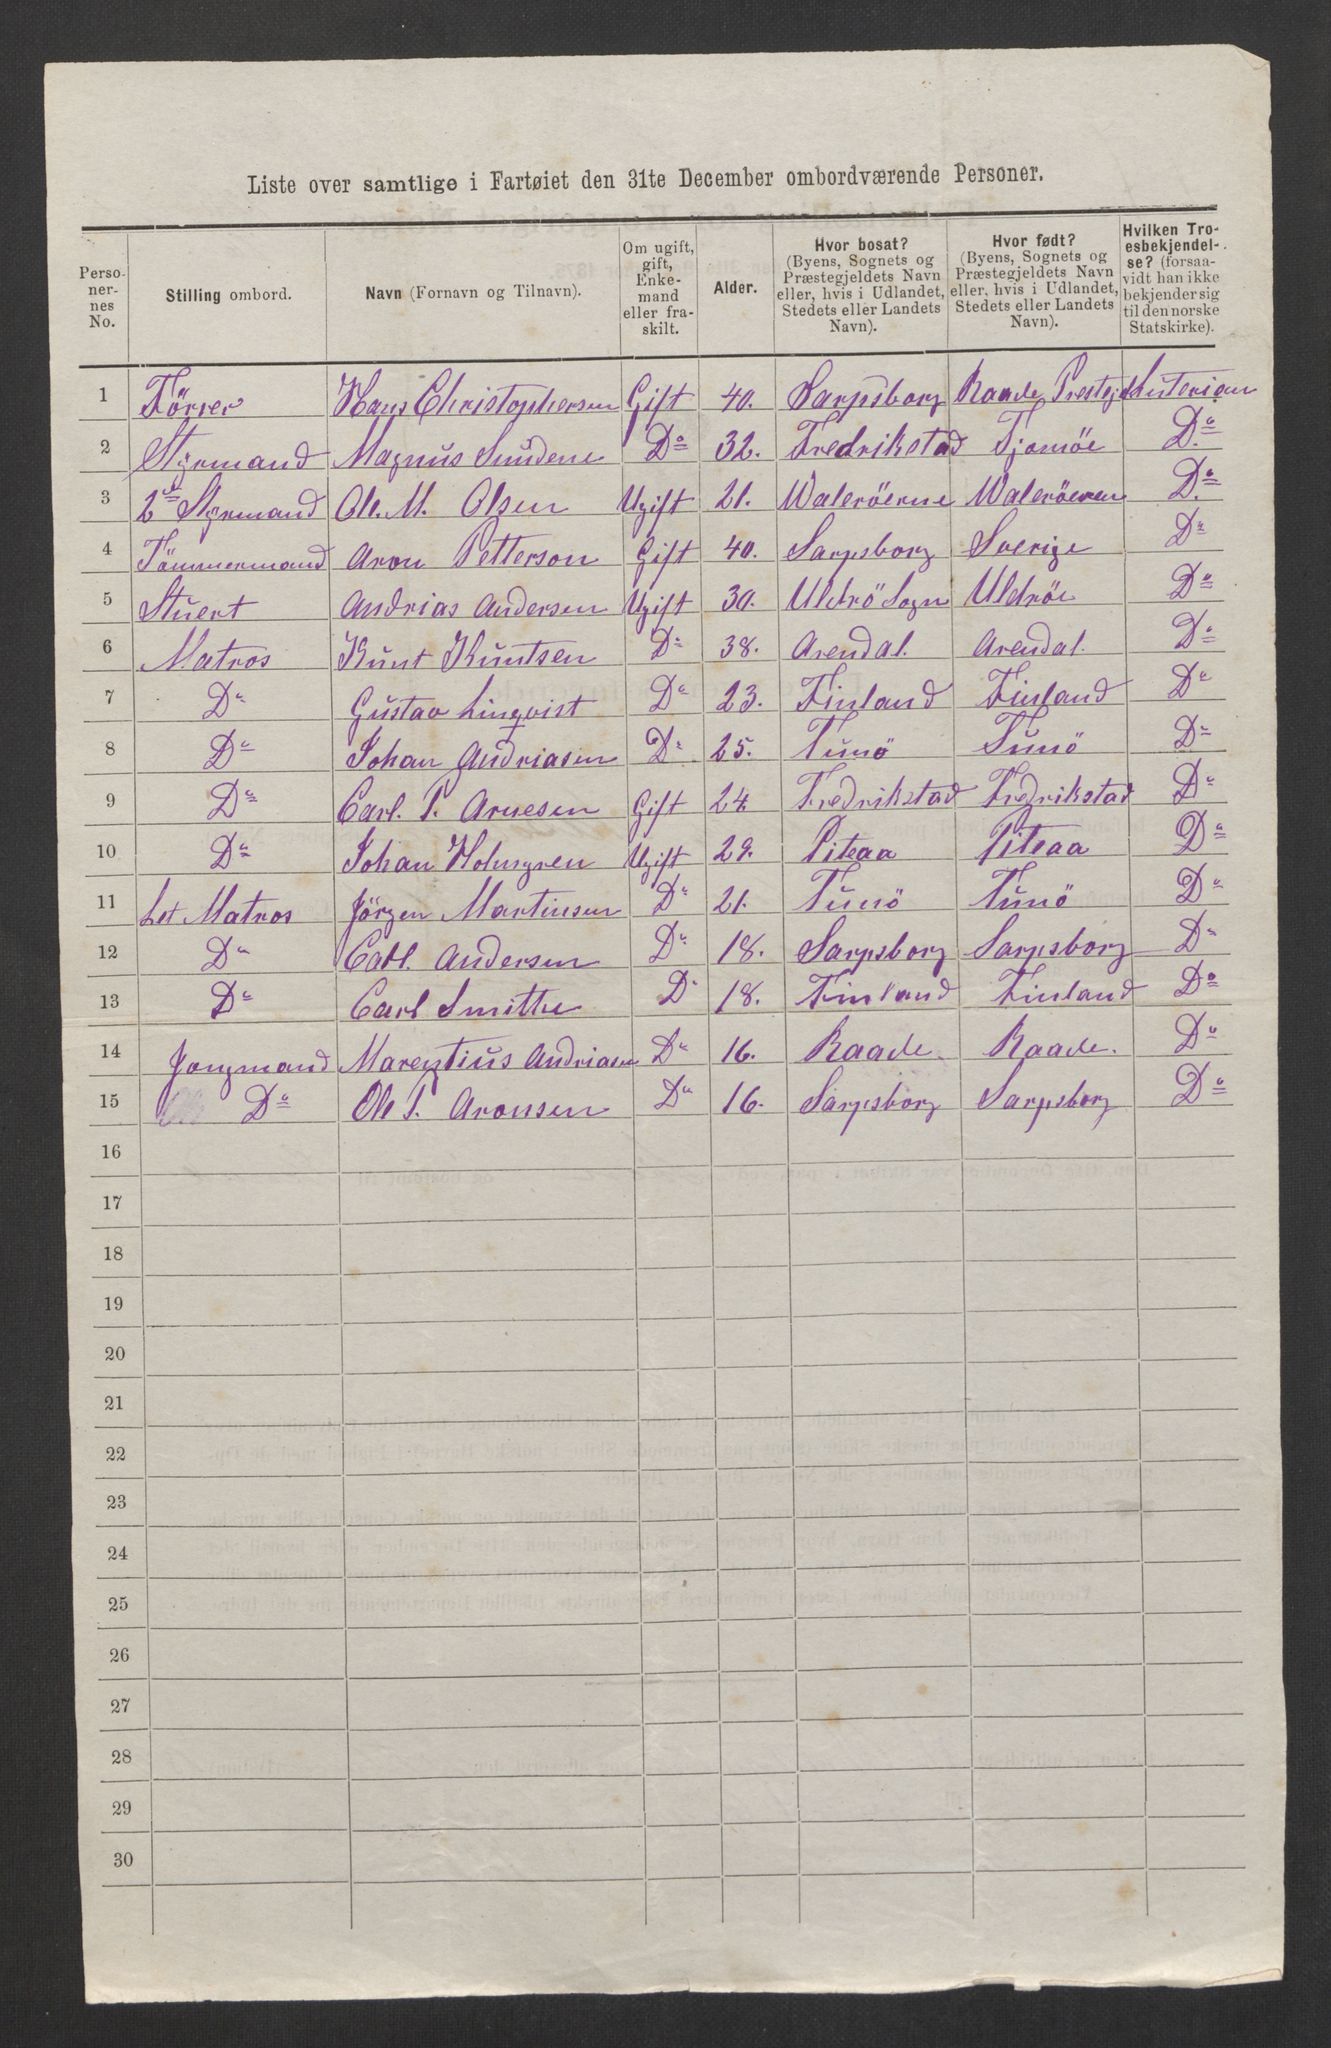 Liste over samtlige i Fartøiet den 31te December ombordværende Personer.
Perso-
ner-
nes
No.
Stilling ombord.
Navn (Fornavn og Tilnavn).
Om ugift,
gift,
Enke-
mand
eller fra-
skilt.
Alder.
Hvor bosat?
(Byens, Sognets og
Præstegjeldets Navn
eller, hvis i Udlandet,
Stedets eller Landets
Navn).
Hvor født?
(Byens, Sognets og
Præstegjeldets Navn
eller, hvis i Udlandet,
Stedets eller Landets
Navn).
Hvilken Tro-
esbekjendel-
se? (forsaa-
vidt han ikke
bekjender sig
til den norske
Statskirke).
1 Förrer Hans Christophersen Gift 40. Sarpsborg Raade Prestegjd Luterian
2 Styrmand Magnus Sundene Do 32. Fredrikstad Tjomöe Do
3 2de Styrmand Ole. M. Olsen Ugift 21. Waleröerne Waleröeren Do
4 Tömmermand Aron Petterson Gift 40. Sarpsborg Sverige Do
5 Stuert Andrias Andersen Ugift 30. Uldrö Sogn Uldröe Do
6 Matros Kunt Kuntsen Do 38. Arendal. Arendal. Do
7 Do Gustav Linqvist Do 23. Finland Finland Do
8 Do Johan Andriasen Do 25. Tunö Tunö Do
9 Do Carl. P. Arnesen Gift 24 Fredrikstad Fredrikstad Do
10 Do Johan Holmgren Ugift 29. Piteaa Piteaa Do
11 Let Matros Jörgen Martinsen Do 21. Tunö Tunö Do
12 Do Carl. Andersen Do 18. Sarpsborg Sarpsborg Do
13 Do Carl Smithe Do 18. Finland Finland Do
14 Jongmand Marentius Andriasen Do 16. Raade. Raade. Do
15 Do Ole P. Aronsen Do 16. Sarpsborg Sarpsborg Do
16
17
18
19
20
21
22
23
24
25
26
27
28
29
30